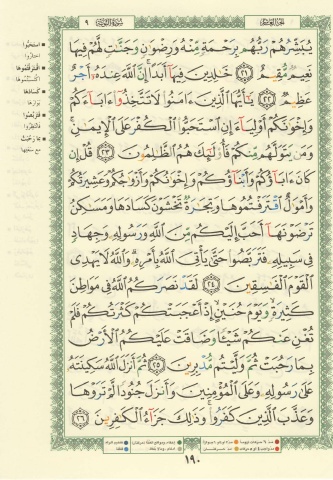 الجزء العاشر
سورة التوبة
٩
يُبَشِّرُهُمْ رَبُّهُم بِرَحْمَةٍ مِّنْهُ وَرِضْوَٰنٍ وَجَنَّـٰتٍ لَّهُمْ فِيهَا
نَعِيمٌ مُّقِيمٌ ٢١ خَـٰلِدِينَ فِيهَآ أَبَدًا ۚ إِنَّ ٱللَّهَ عِندَهُۥٓ أَجْرٌ
عَظِيمٌ ٢٢ يَـٰٓأَيُّهَا ٱلَّذِينَ ءَامَنُوا۟ لَا تَتَّخِذُوٓا۟ ءَابَآءَكُمْ
وَإِخْوَٰنَكُمْ أَوْلِيَآءَ إِنِ ٱسْتَحَبُّوا۟ ٱلْكُفْرَ عَلَى ٱلْإِيمَـٰنِ ۚ
وَمَن يَتَوَلَّهُم مِّنكُمْ فَأُو۟لَـٰٓئِكَ هُمُ ٱلظَّـٰلِمُونَ ٢٣ قُلْ إِن
كَانَ ءَابَآؤُكُمْ وَأَبْنَآؤُكُمْ وَإِخْوَٰنُكُمْ وَأَزْوَٰجُكُمْ وَعَشِيرَتُكُمْ
وَأَمْوَٰلٌ ٱقْتَرَفْتُمُوهَا وَتِجَـٰرَةٌ تَخْشَوْنَ كَسَادَهَا وَمَسَـٰكِنُ
تَرْضَوْنَهَآ أَحَبَّ إِلَيْكُم مِّنَ ٱللَّهِ وَرَسُولِهِۦ وَجِهَادٍ
فِى سَبِيلِهِۦ فَتَرَبَّصُوا۟ حَتَّىٰ يَأْتِىَ ٱللَّهُ بِأَمْرِهِۦ ۗ وَٱللَّهُ لَا يَهْدِى
ٱلْقَوْمَ ٱلْفَـٰسِقِينَ ٢٤ لَقَدْ نَصَرَكُمُ ٱللَّهُ فِى مَوَاطِنَ
كَثِيرَةٍ ۙ وَيَوْمَ حُنَيْنٍ ۙ إِذْ أَعْجَبَتْكُمْ كَثْرَتُكُمْ فَلَمْ
تُغْنِ عَنكُمْ شَيْـًٔا وَضَاقَتْ عَلَيْكُمُ ٱلْأَرْضُ
بِمَا رَحُبَتْ ثُمَّ وَلَّيْتُم مُّدْبِرِينَ ٢٥ ثُمَّ أَنزَلَ ٱللَّهُ سَكِينَتَهُۥ
عَلَىٰ رَسُولِهِۦ وَعَلَى ٱلْمُؤْمِنِينَ وَأَنزَلَ جُنُودًا لَّمْ تَرَوْهَا
وَعَذَّبَ ٱلَّذِينَ كَفَرُوا۟ ۚ وَذَٰلِكَ جَزَآءُ ٱلْكَـٰفِرِينَ ٢٦
استحبوا
اختاروا
اقترفتموها
اكتسبتموها
كسادها
بوارها
فتربصوا
فانتظروا
بما رحبت
مع سعتها
١٩٠